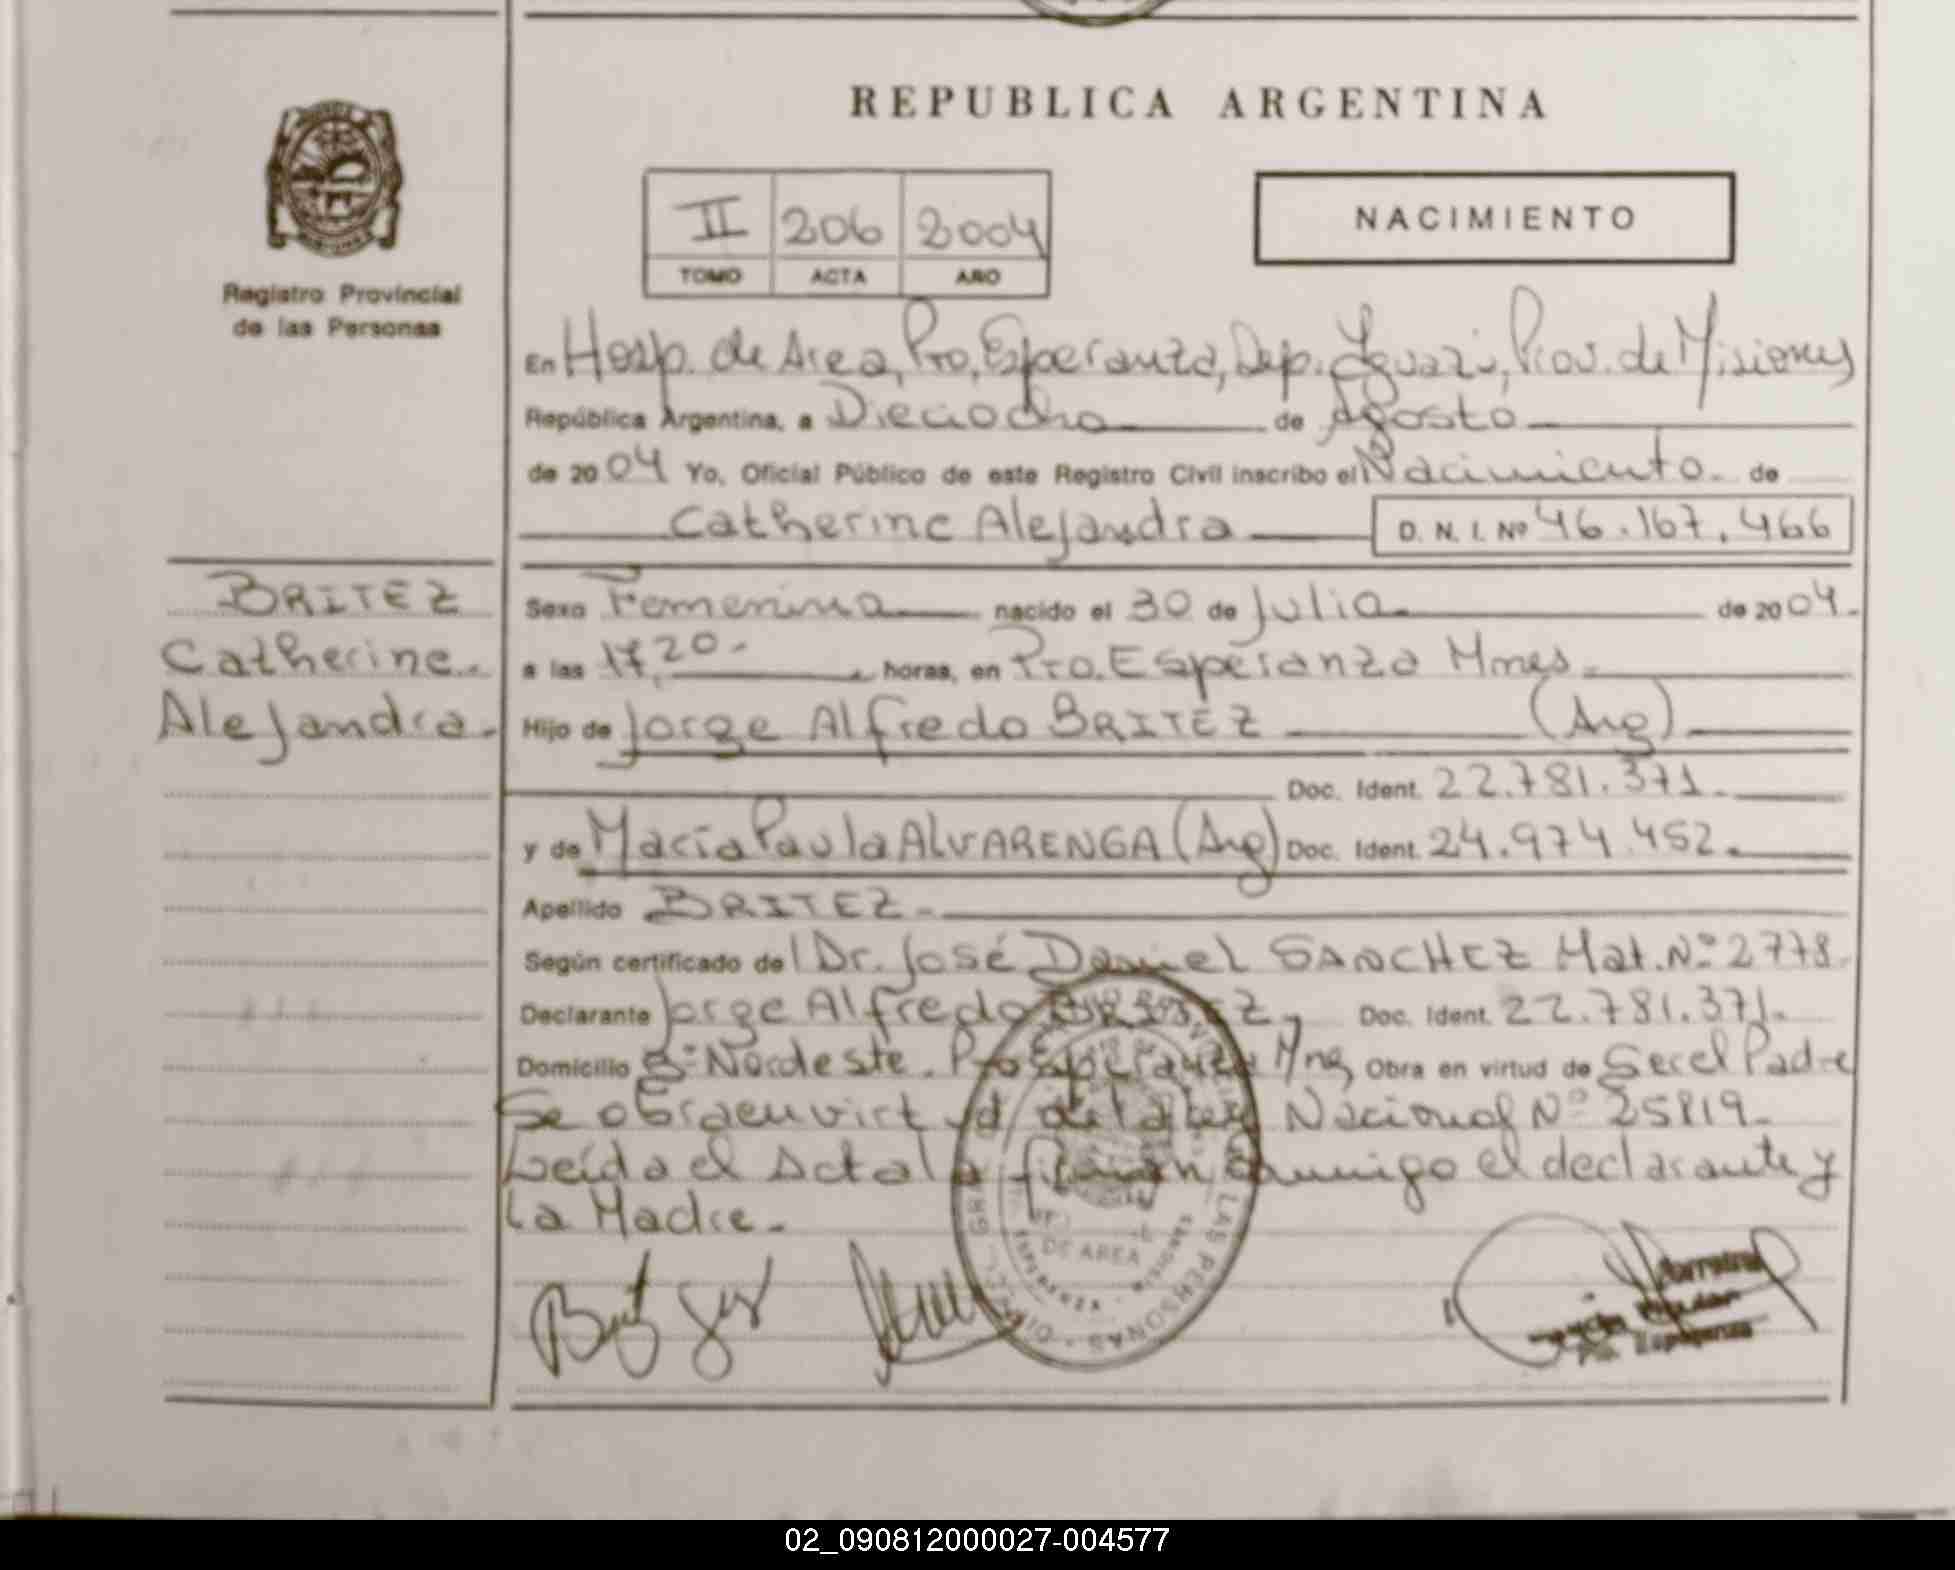 REPUBLICA ARGENTINA
Registro Provincial
de las Personas
II 206 2004
TOMO ACTA AÑO
NACIMIENTO
En Hosp. de Area, Pto, Esperanza, Dep. Iguazú, Prov. de Misiones
República Argentina, a Dieciocho de Agosto
de 2004 Yo, Oficial Público de este Registro Civil inscribo el Nacimiento. de
Catherine Alejandra D. N. I. Nº 46.167.466
BRITEZ
Catherine.
Alejandra.
Sexo Femenina nacido el 30 de Julio. de 2004.
a las 17,20. horas, en Pto. Esperanza Mnes.
Hijo de Jorge Alfredo BRITEZ (Arg)
Doc. Ident. 22.781.371.
y de María Paula ALVARENGA (Arg) Doc. Ident. 24.974.452.
Apellido BRITEZ.
Según certificado del Dr. José Daniel SANCHEZ Mat. Nº 2778.
Declarante Jorge Alfredo BRITEZ, Doc. Ident. 22.781.371.
Domicilio Bº Nordeste. Pto Esperanza Mnes Obra en virtud de Ser el Padre
Se obra en virtud de la Ley Nacional Nº 25819.
Leída el Acta la firman conmigo el declarante y
La Madre.
DE AREA
ESPERANZA
LAS PERSONAS
02_090812000027-004577